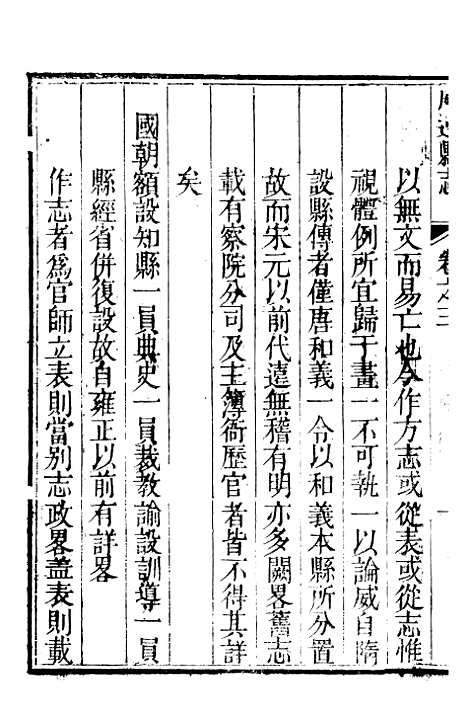 威遠縣志
卷之三
以無文而易亡也今作方志或從表或從志惟
視體例所宜歸于畫一不可執一以論威自隋
設縣傳者僅唐和義一令以和義本縣所分置
故而宋元以前代遠無稽有明亦多闕畧舊志
載有察院分司及主簿衙歷官者皆不得其詳
矣
國朝額設知縣一員典史一員裁教諭設訓導一員
縣經省併復設故自雍正以前有詳畧
作志者爲官師立表則當别志政畧盖表則載